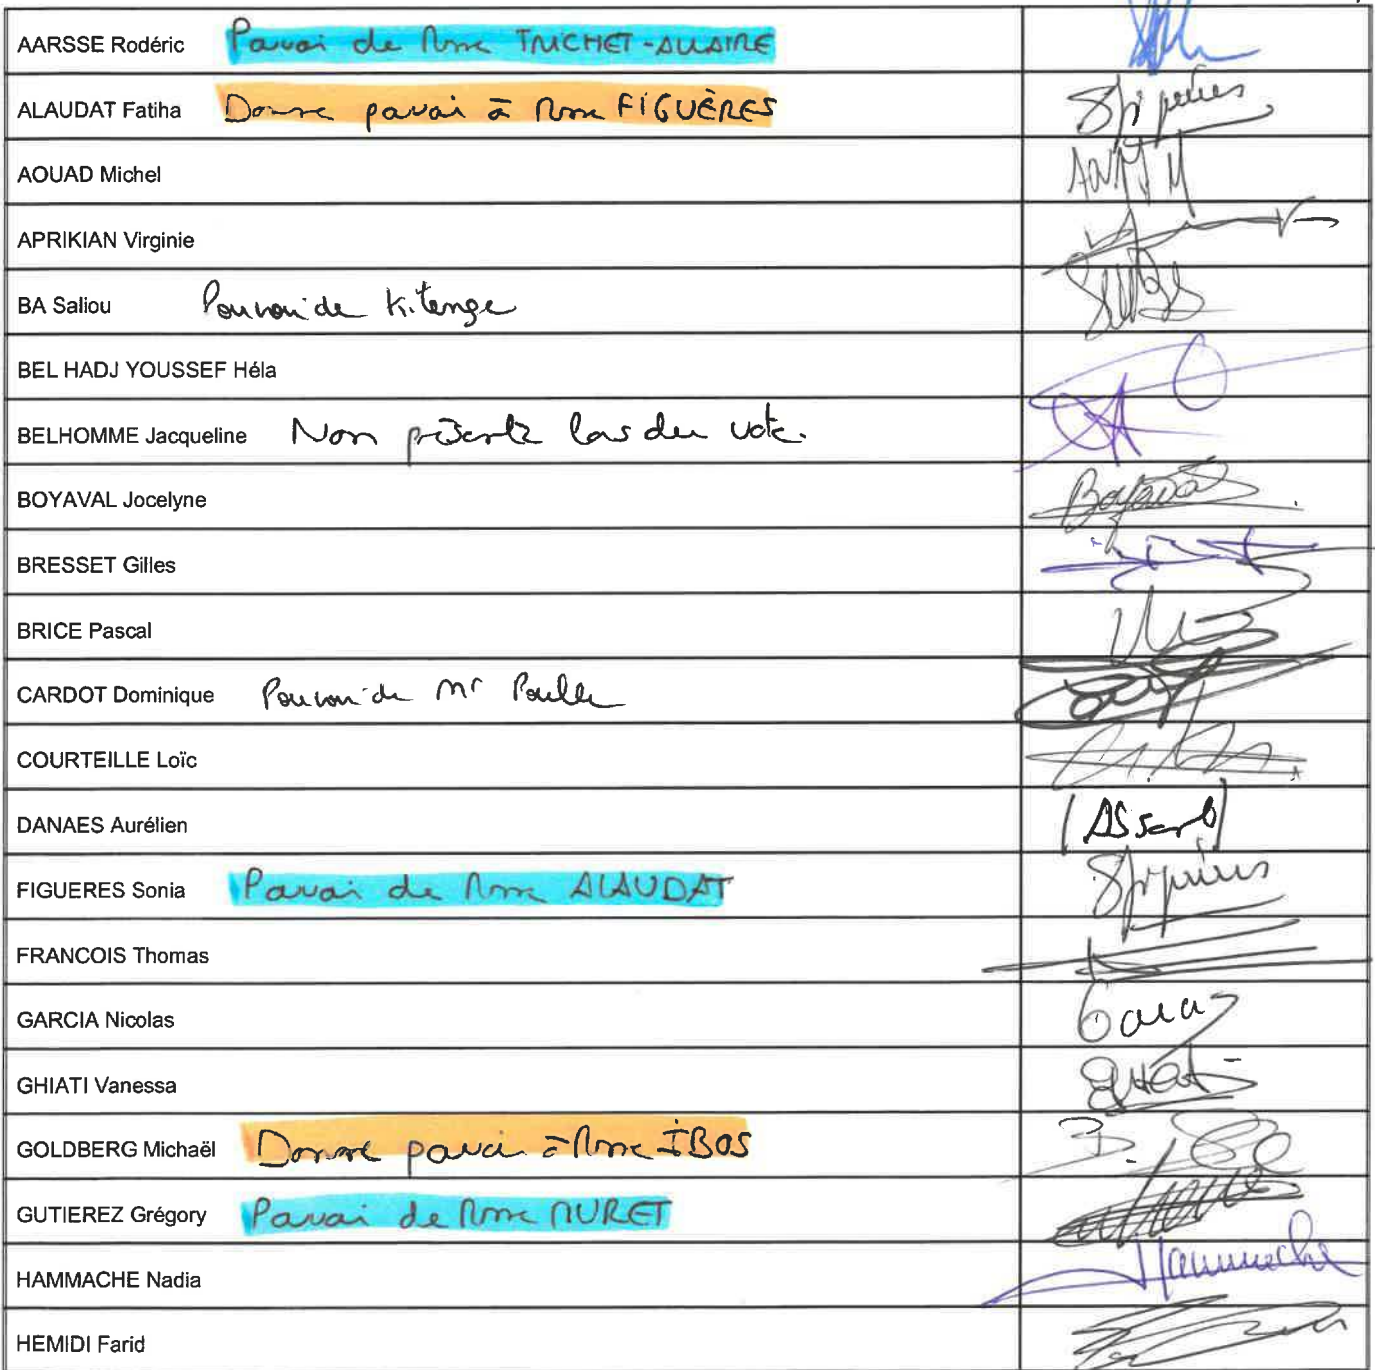 AARSSE Rodéric Pouvoir de Mme TRICHET-ALLAIRE
ALAUDAT Fatiha Donne pouvoir à Mme FIGUÈRES
AOUAD Michel
APRIKIAN Virginie
BA Saliou Pouvoir de Kitenge
BEL HADJ YOUSSEF Héla
BELHOMME Jacqueline Non présente lors du vote.
BOYAVAL Jocelyne
BRESSET Gilles
BRICE Pascal
CARDOT Dominique Pouvoir de Mr Poulle
COURTEILLE Loïc
DANAES Aurélien
FIGUERES Sonia Pouvoir de Mme ALAUDAT
FRANCOIS Thomas
GARCIA Nicolas
GHIATI Vanessa
GOLDBERG Michaël Donne pouvoir à Mme IBOS
GUTIEREZ Grégory Pouvoir de Mme MURET
HAMMACHE Nadia Hammache
HEMIDI Farid